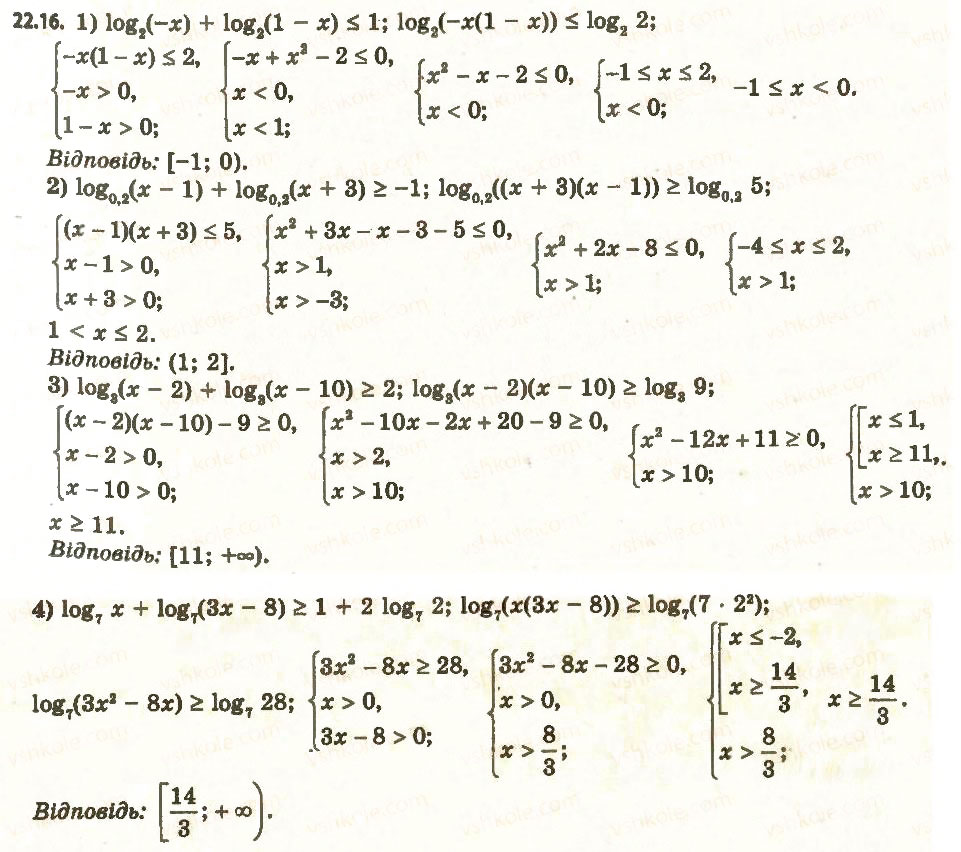 22.16. 1) log₂(−x) + log₂(1 − x) ≤ 1; log₂(−x(1 − x)) ≤ log₂ 2;
{−x(1 − x) ≤ 2, −x > 0, 1 − x > 0; {−x + x² − 2 ≤ 0, x < 0, x < 1; {x² − x − 2 ≤ 0, x < 0; {−1 ≤ x ≤ 2, x < 0; −1 ≤ x < 0.
Відповідь: [−1; 0).
2) log₀,₂(x − 1) + log₀,₂(x + 3) ≥ −1; log₀,₂((x + 3)(x − 1)) ≥ log₀,₂ 5;
{(x − 1)(x + 3) ≤ 5, x − 1 > 0, x + 3 > 0; {x² + 3x − x − 3 − 5 ≤ 0, x > 1, x > −3; {x² + 2x − 8 ≤ 0, x > 1; {−4 ≤ x ≤ 2, x > 1;
1 < x ≤ 2.
Відповідь: (1; 2].
3) log₃(x − 2) + log₃(x − 10) ≥ 2; log₃(x − 2)(x − 10) ≥ log₃ 9;
{(x − 2)(x − 10) − 9 ≥ 0, x − 2 > 0, x − 10 > 0; {x² − 10x − 2x + 20 − 9 ≥ 0, x > 2, x > 10; {x² − 12x + 11 ≥ 0, x > 10; {[x ≤ 1, x ≥ 11, x > 10;
x ≥ 11.
Відповідь: [11; +∞).
4) log₇ x + log₇(3x − 8) ≥ 1 + 2 log₇ 2; log₇(x(3x − 8)) ≥ log₇(7 · 2²);
log₇(3x² − 8x) ≥ log₇ 28; {3x² − 8x ≥ 28, x > 0, 3x − 8 > 0; {3x² − 8x − 28 ≥ 0, x > 0, x > 8/3; {[x ≤ −2, x ≥ 14/3, x > 8/3; x ≥ 14/3.
Відповідь: [14/3; +∞).